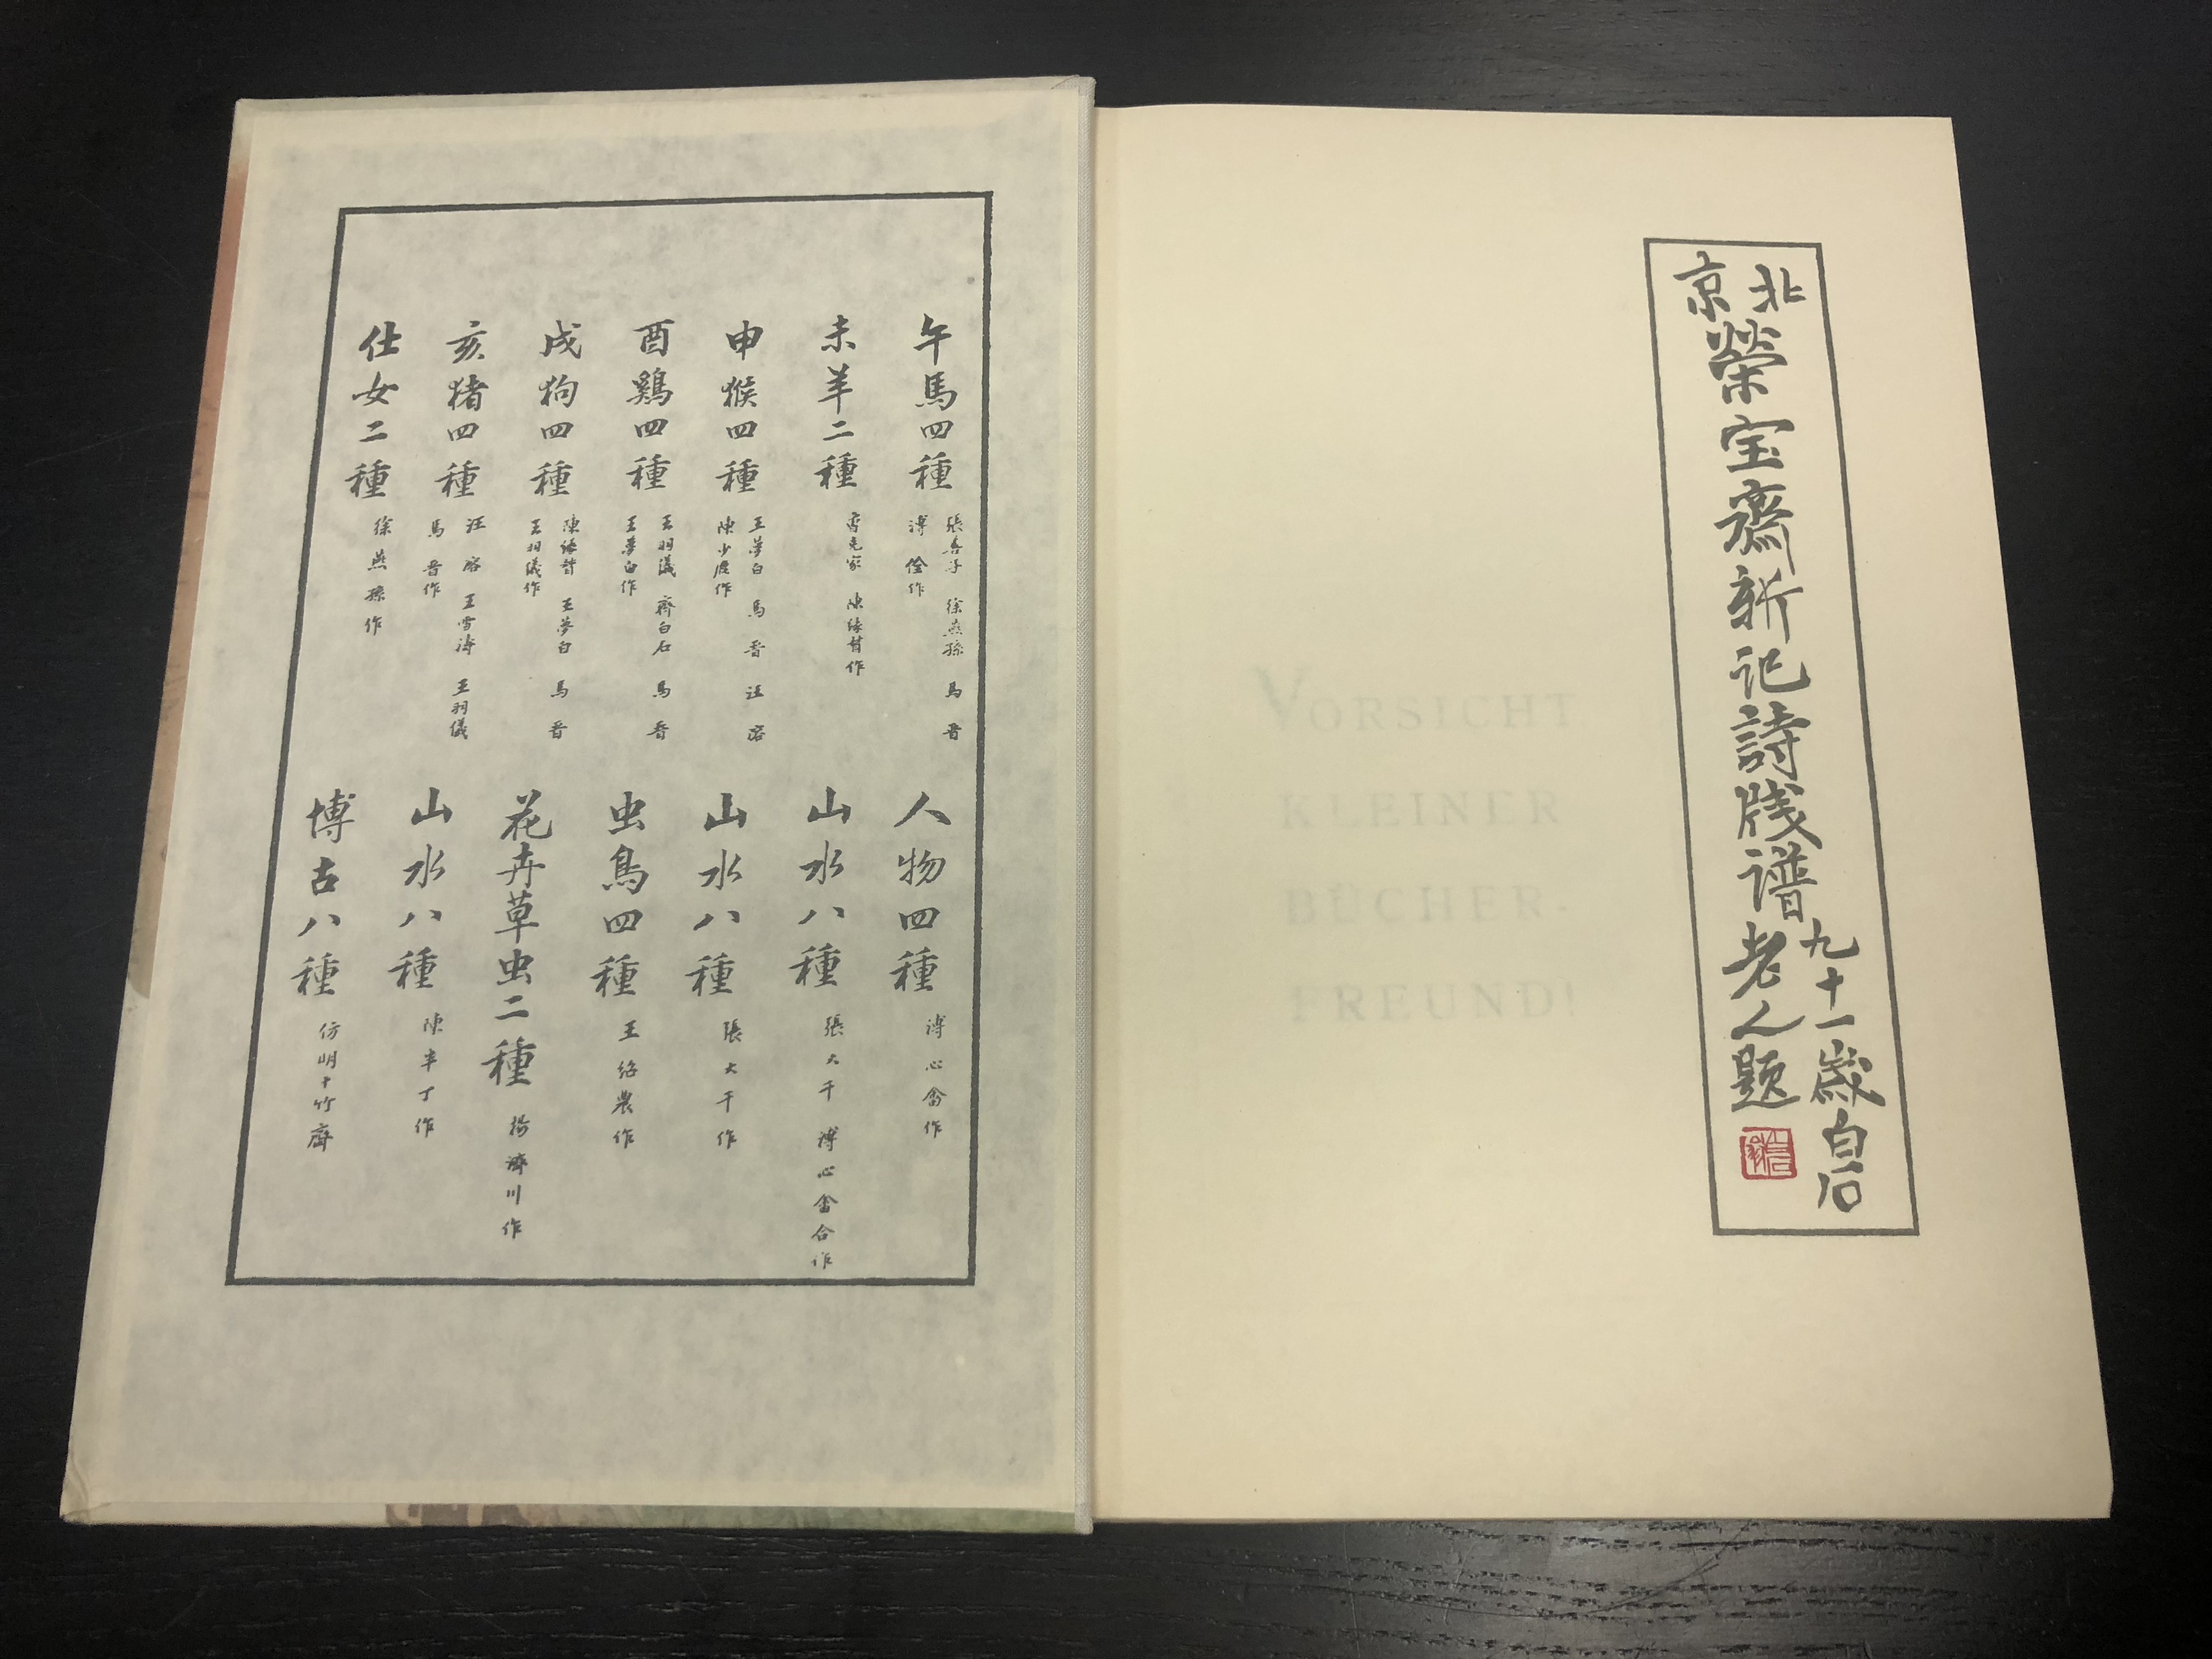 午馬四種 張善子 徐燕孫 馬晋
溥佺作
未羊二種 陳緣督作
申猴四種 王夢白 馬晋 汪溶
陳少鹿作
酉鷄四種 王羽儀 齊白石 馬晋
王夢白作
戌狗四種 陳緣督 王夢白 馬晋
王羽儀作
亥猪四種 汪溶 王雪涛 王羽儀
馬晋作
仕女二種 徐燕孫作
人物四種 溥心畬作
山水八種 張大千 溥心畬合作
山水八種 張大千作
虫鳥四種 王紹農作
花卉草虫二種 楊濟川作
山水八種 陳半丁作
博古八種 仿明十竹齋
北京榮宝齋新记詩牋谱
九十一歲白石
老人题
VORSICHT
KLEINER
BÜCHER-
FREUND!